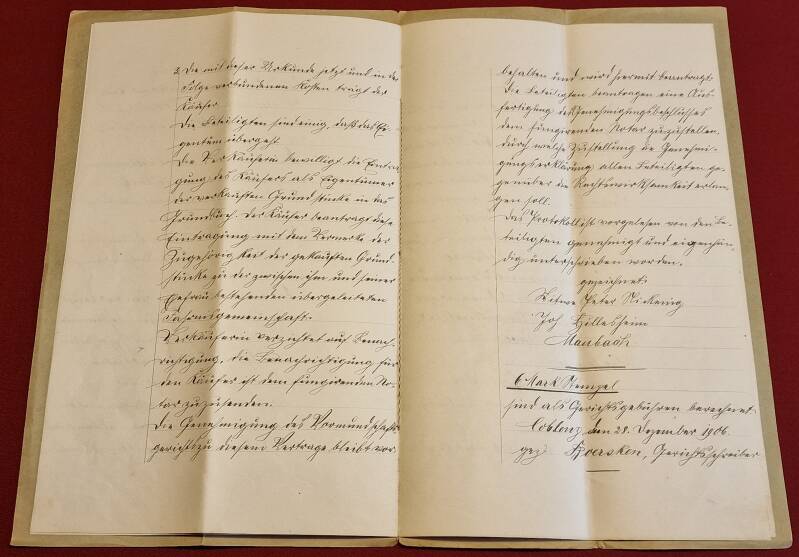 3. Die mit dieser Urkunde jetzt und in der
Folge verbundenen Kosten trägt der
Käufer
Die Beteiligten sind einig, daß das Ei-
gentum übergeht
Die Verkäuferin bewilligt die Eintra-
gung des Käufers als Eigentümer
der verkauften Grundstücke in das
Grundbuch. Der Käufer beantragt diese
Eintragung mit dem Vermerke der
Zugehörigkeit der gekauften Grund-
stücke zu der zwischen ihm und seiner
Ehefrau bestehenden übergeleiteten
Fahrnisgemeinschaft.
Verkäuferin verzichtet auf Benach-
richtigung, die Benachrichtigung für
den Käufer ist dem fungirenden No-
tar zuzusenden.
Die Genehmigung des Vormundschafts-
gerichts zu diesem Vertrage bleibt vor-
behalten und wird hiermit beantragt.
Die Beteiligten beantragen eine Aus-
fertigung des Genehmigungsbeschlusses
dem fungirenden Notar zuzustellen,
durch welche Zustellung die Genehmi-
gungserklärung allen Beteiligten ge-
genüber die Rechtswirksamkeit erlan-
gen soll.
Das Protokoll ist vorgelesen von den Be-
teiligten genehmigt und eigenhän-
dig unterschrieben worden.
gezeichnet:
Witwe Peter
Joh Hillesheim
Maubach
6 Mark Stempel
sind als Gerichtsgebühren berechnet.
Coblenz, den 28. Dezember 1906.
gez. Koersken, Gerichtsschreiber